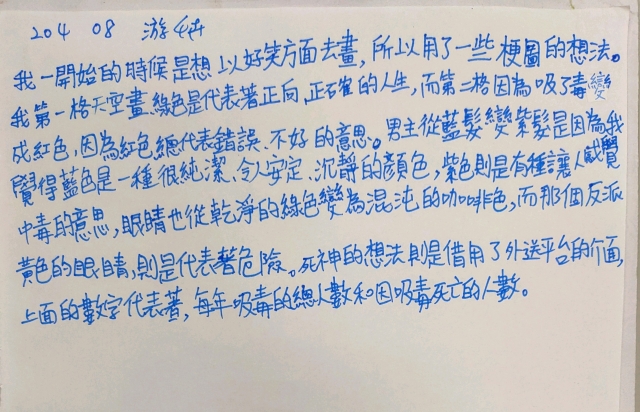 204 08 游
我一開始的時候是想以好笑方面去畫，所以用了一些梗圖的想法。
我第一格天空畫綠色是代表著正向、正確的人生，而第二格因為吸了毒變
成紅色，因為紅色總代表錯誤、不好的意思。男主從藍髮變紫髮是因為我
覺得藍色是一種很純潔、令人安定、沉靜的顏色，紫色則是有種讓人感覺
中毒的意思，眼睛也從乾淨的綠色變為混沌的咖啡色，而那個反派
黃色的眼睛，則是代表著危險。死神的想法則是借用了外送平台的介面，
上面的數字代表著，每年吸毒的總人數和因吸毒死亡的人數。